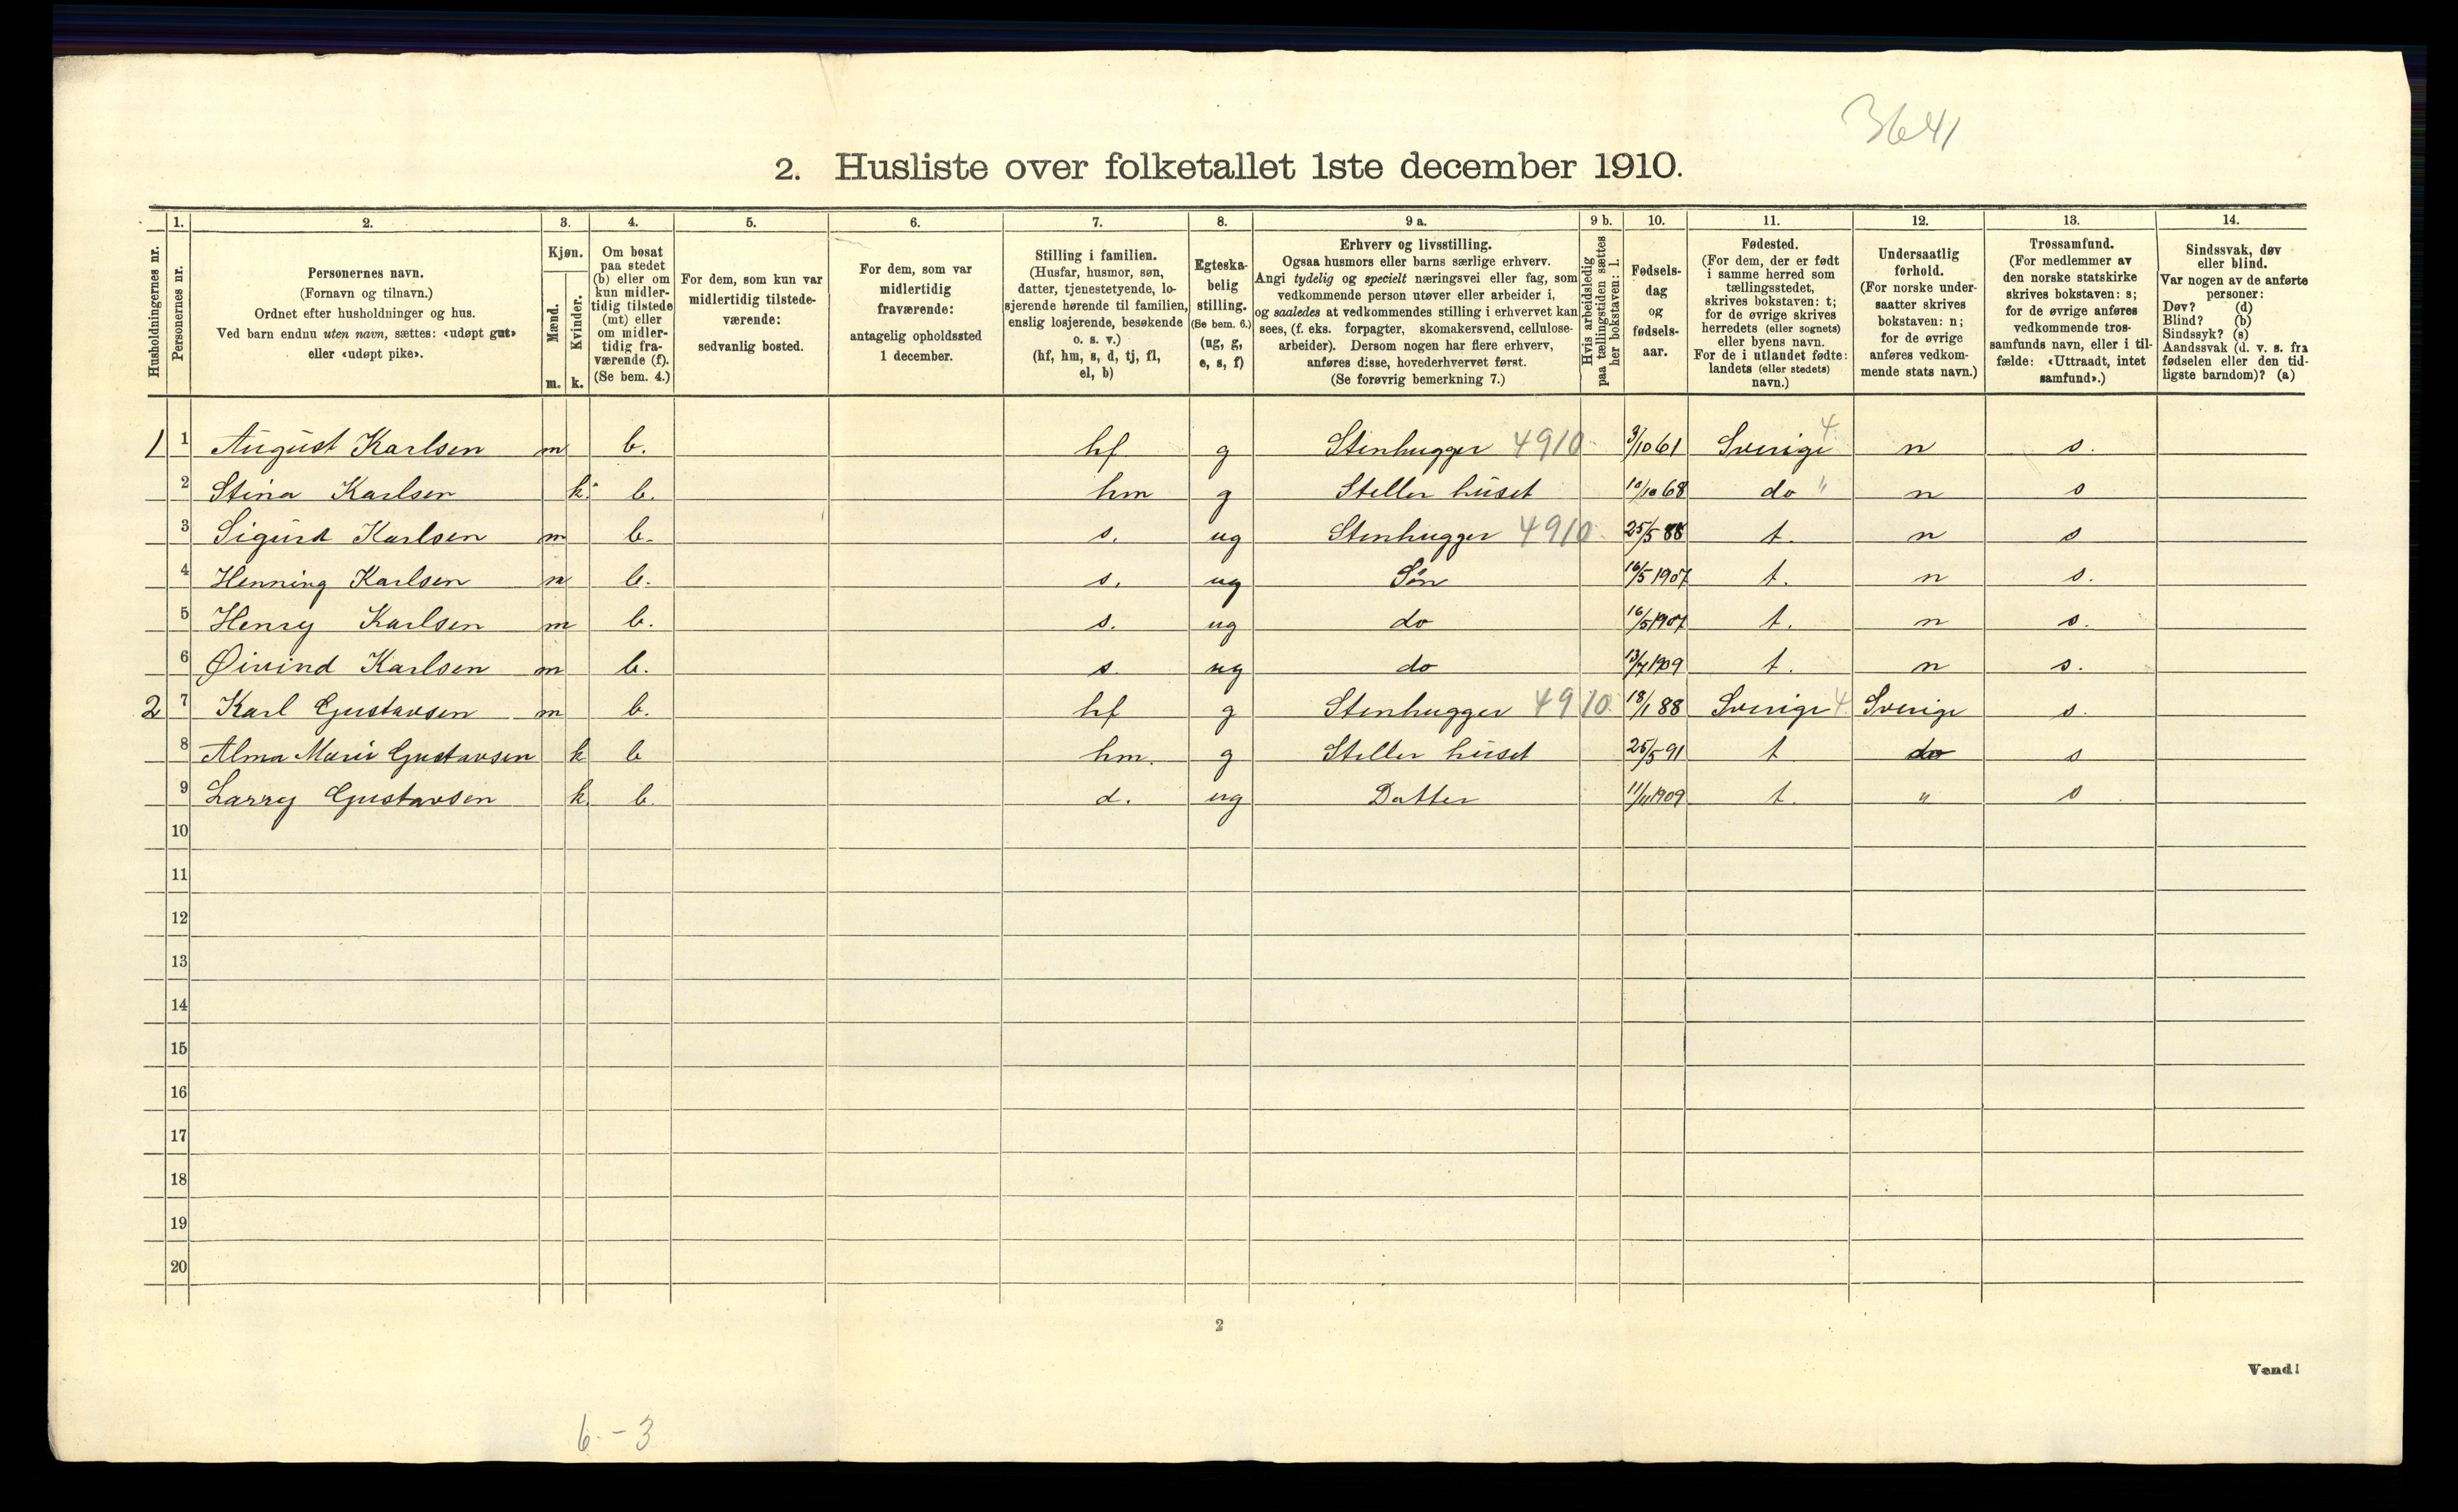 3641
2. Husliste over folketallet 1ste december 1910.
Husholdningernes nr.
1.
Personernes nr.
2.
Personernes navn.
(Fornavn og tilnavn.)
Ordnet efter husholdninger og hus.
Ved barn endnu uten navn, sættes: «udøpt gut»
eller «udøpt pike».
3.
Kjøn.
Mænd.
Kvinder.
m. k.
4.
Om bosat
paa stedet
(b) eller om
kun midler-
tidig tilstede
(mt) eller
om midler-
tidig fra-
værende (f).
(Se bem. 4.)
5.
For dem, som kun var
midlertidig tilstede-
værende:
sedvanlig bosted.
6.
For dem, som var
midlertidig
fraværende:
antagelig opholdssted
1 december.
7.
Stilling i familien.
(Husfar, husmor, søn,
datter, tjenestetyende, lo-
sjerende hørende til familien,
enslig losjerende, besøkende
o. s. v.)
(hf, hm, s, d, tj, fl,
el, b)
8.
Egteska-
belig
stilling.
(Se bem. 6.)
(ug, g,
e, s, f)
9 a.
Erhverv og livsstilling.
Ogsaa husmors eller barns særlige erhverv.
Angi tydelig og specielt næringsvei eller fag, som
vedkommende person utøver eller arbeider i,
og saaledes at vedkommendes stilling i erhvervet kan
sees, (f. eks. forpagter, skomakersvend, cellulose-
arbeider). Dersom nogen har flere erhverv,
anføres disse, hovederhvervet først.
(Se forøvrig bemerkning 7.)
9 b.
Hvis arbeidsledig
paa tællingstiden sættes
her bokstaven: l.
10.
Fødsels-
dag
og
fødsels-
aar.
11.
Fødested.
(For dem, der er født
i samme herred som
tællingsstedet,
skrives bokstaven: t;
for de øvrige skrives
herredets (eller sognets)
eller byens navn.
For de i utlandet fødte:
landets (eller stedets)
navn.)
12.
Undersaatlig
forhold.
(For norske under-
saatter skrives
bokstaven: n;
for de øvrige
anføres vedkom-
mende stats navn.)
13.
Trossamfund.
(For medlemmer av
den norske statskirke
skrives bokstaven: s;
for de øvrige anføres
vedkommende tros-
samfunds navn, eller i til-
fælde: «Uttraadt, intet
samfund».)
14.
Sindssvak, døv
eller blind.
Var nogen av de anførte
personer:
Døv? (d)
Blind? (b)
Sindssyk? (s)
Aandssvak (d. v. s. fra
fødselen eller den tid-
ligste barndom)? (a)
1 1 August Karlsen m b. hf g Stenhugger 4910 3/10 61 Sverige 4 n s.
2 Stina Karlsen k. b. hm g Steller huset 10/10 68 do " n s
3 Sigurd Karlsen m b. s. ug Stenhugger 4910 25/5 88 t. n s
4 Henning Karlsen m b. s. ug Sön 16/5 1907 t. n s.
5 Henry Karlsen m b. s. ug do 16/5 1907 t. n s.
6 Øivind Karlsen m b. s. ug do 13/7 1909 t. n s.
2 7 Karl Gustavsen m b. hf g Stenhugger 4910 18/1 88 Sverige 4 Sverige s.
8 Alma Marie Gustavsen k b hm. g Steller huset 25/5 91 t do s
9 Larry Gustavsen k b. d. ug Datter 11/11 1909 t. " s
10
11
12
13
14
15
16
17
18
19
20
2
Vend!
6 - 3